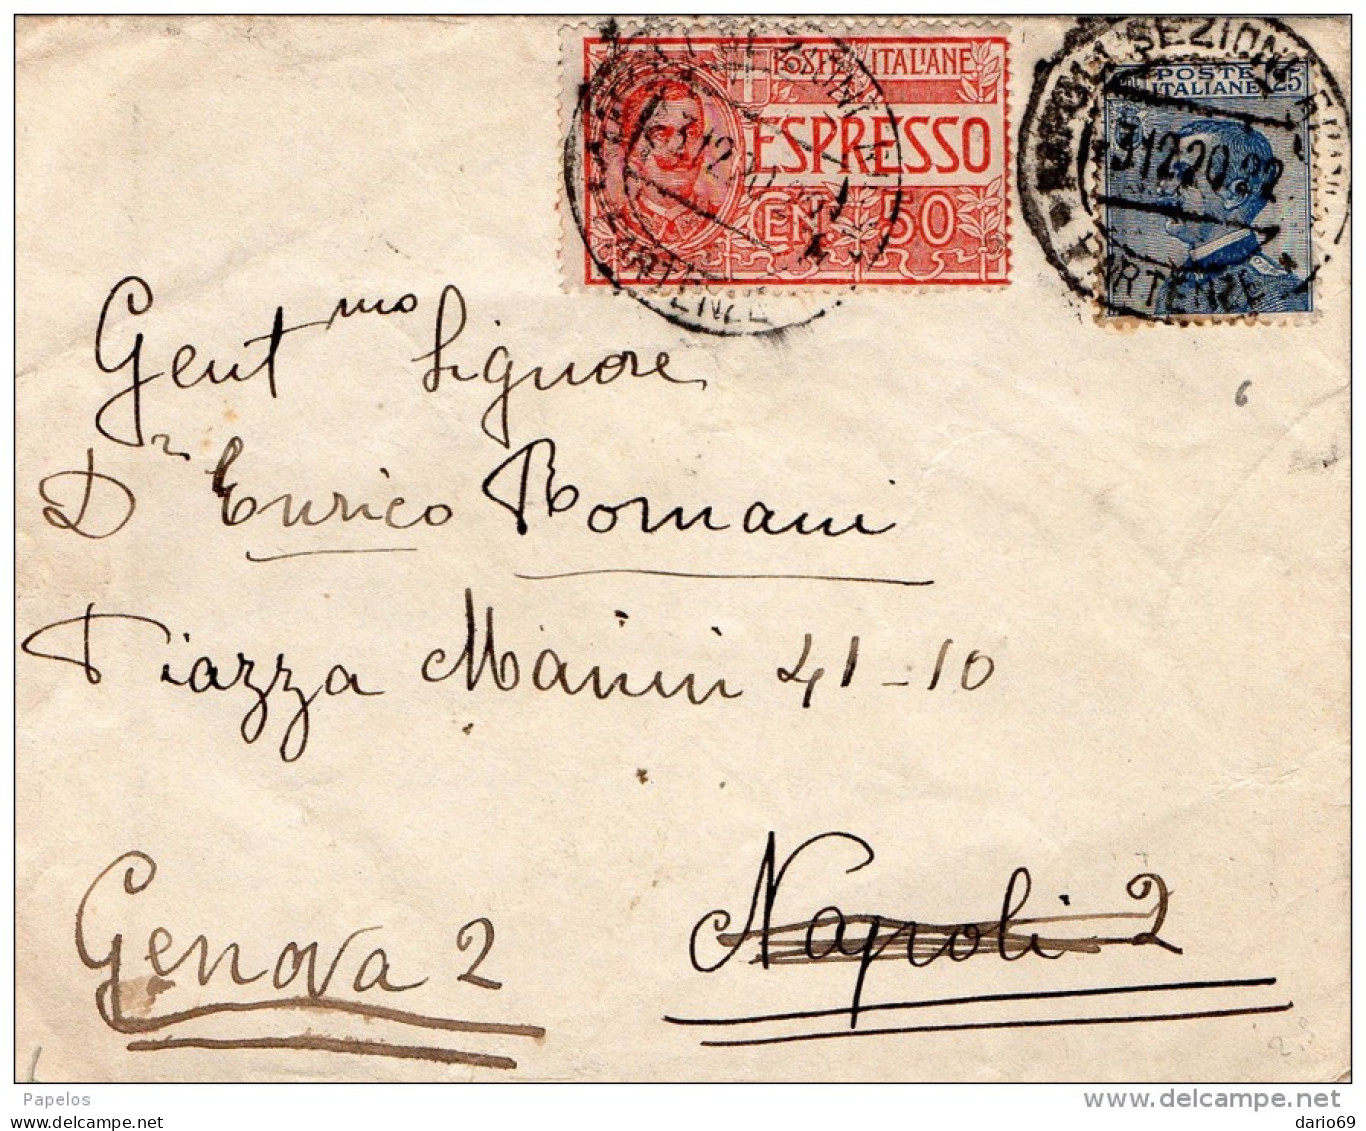 POSTE ITALIANE
ESPRESSO
CEN. 50
POSTE
ITALIANE
25
3.12.20.22
PARTENZE
NAPOLI SEZIONI
3.12.20.22
PARTENZE
6
Gent mo Signore
Dr Enrico Romani
Piazza Manin 41-10
Genova 2 Napoli 2
Papelos
delcampe.net
dario69